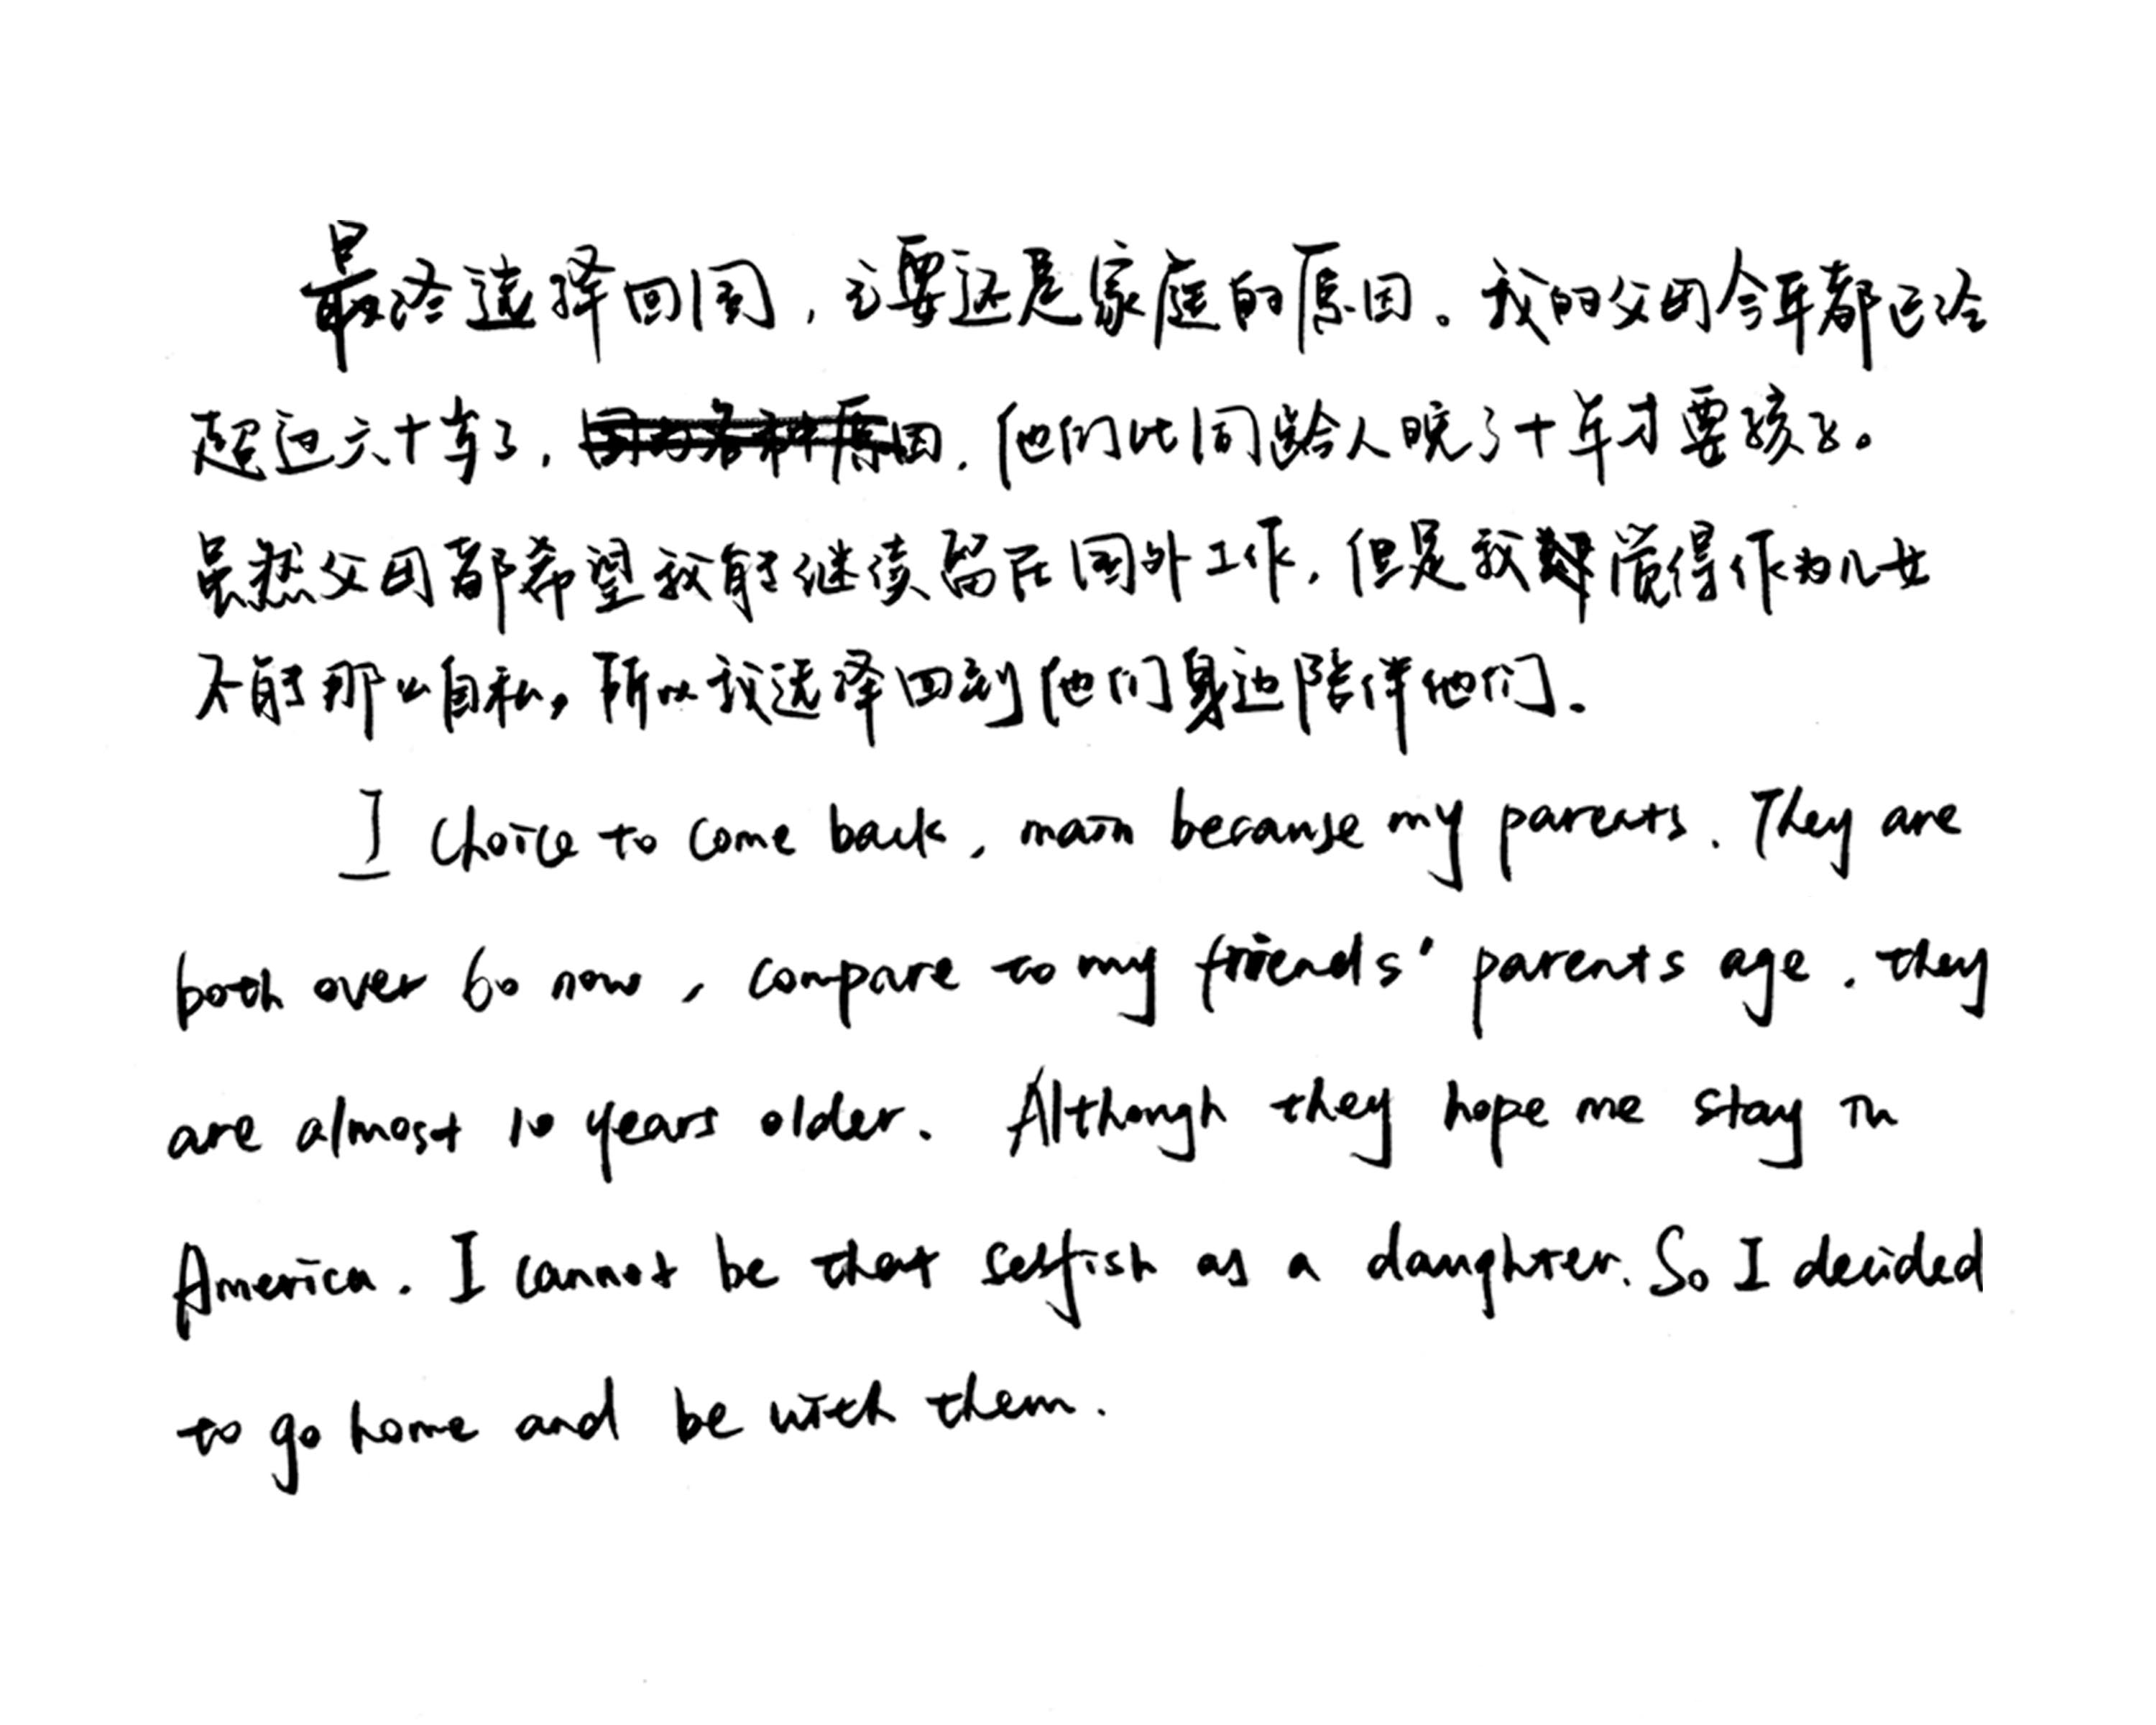 最终选择回国，主要还是家庭的原因。我的父母今年都已经
超过六十岁了，他们比同龄人晚了十年才要孩子。
虽然父母都希望我能继续留在国外工作，但是我觉得作为儿女
不能那么自私，所以我选择回到他们身边陪伴他们.
I choice to come back, main because my parents. They are
both over 60 now, compare to my friends' parents age. they
are almost 10 years older. Although they hope me stay in
America. I cannot be that selfish as a daughter. So I decided
to go home and be with them.